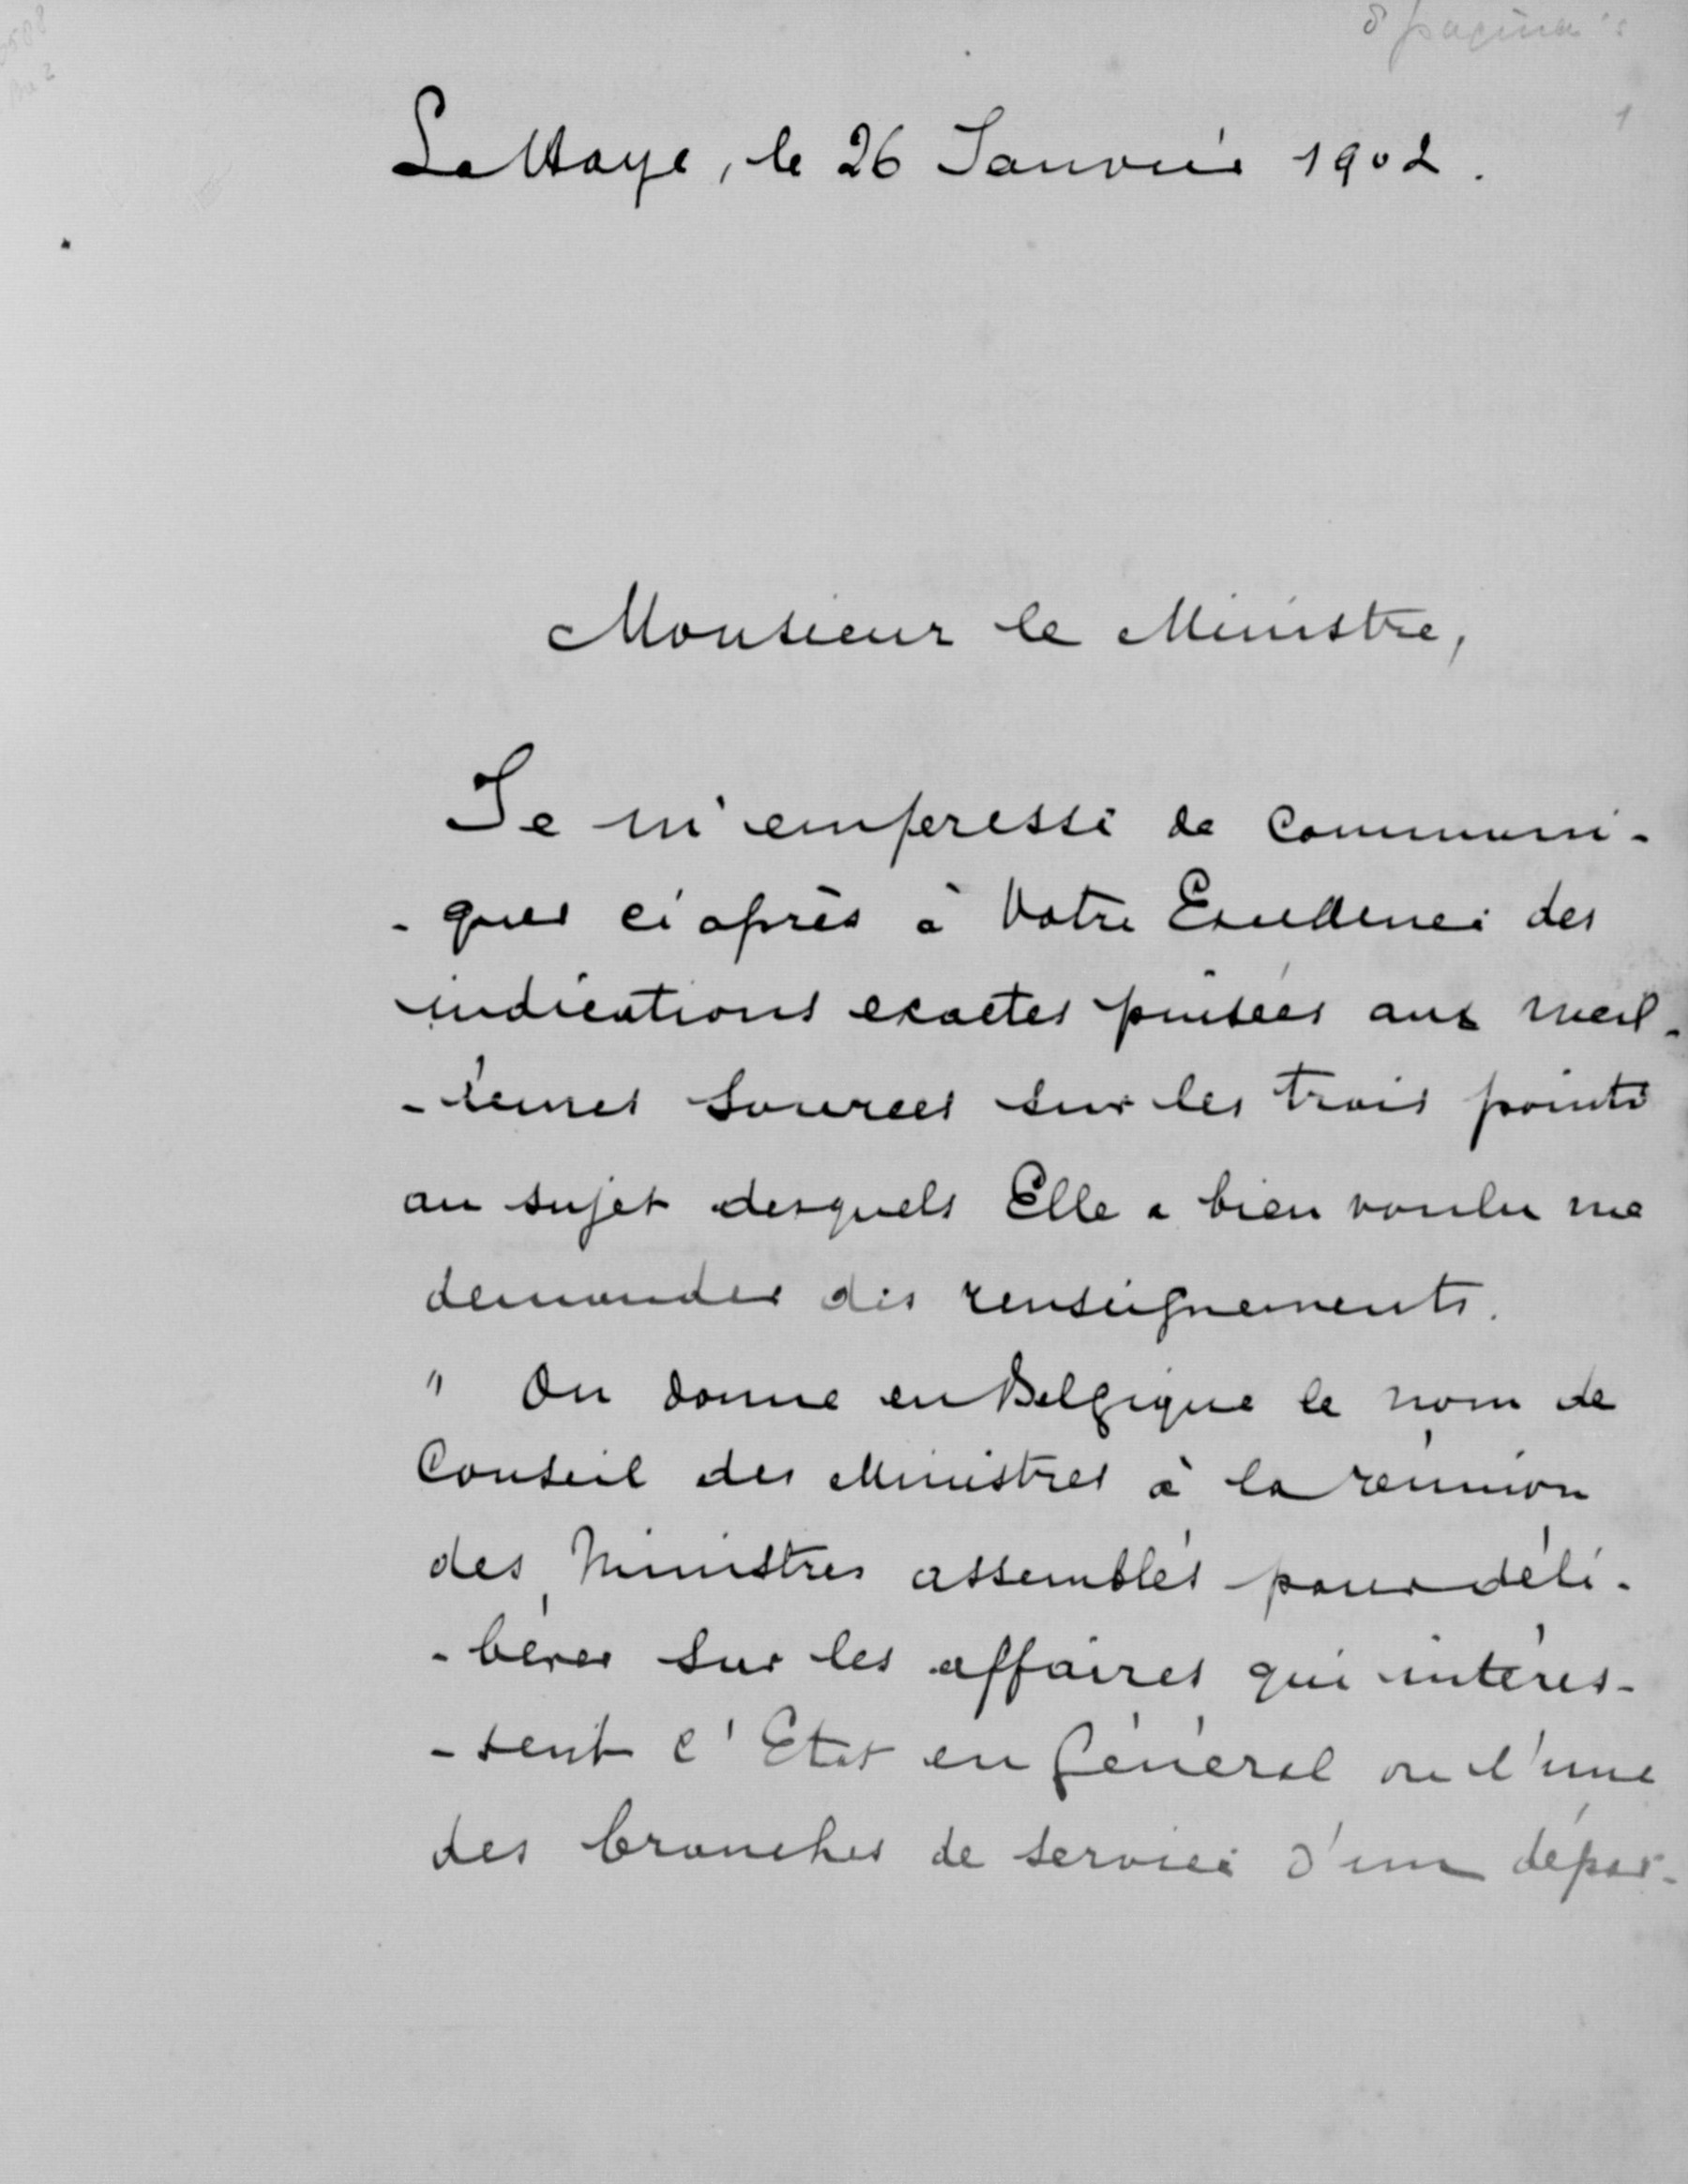 8 pagina's
1
La Haye, le 26 Janvier 1902.
Monsieur le Ministre,
Je m'empresse de communi-
-quer ci après à Votre Excellence des
indications exactes puisées aux meil-
-leures sources sur les trois points
au sujet desquels Elle a bien voulu me
demander des renseignements.
" On donne en Belgique le nom de
Conseil des Ministres à la réunion
des Ministres assemblés pour déli-
-bérer sur les affaires qui intéres-
-sent l'Etat en général ou l'une
des branches de service d'un dépar-